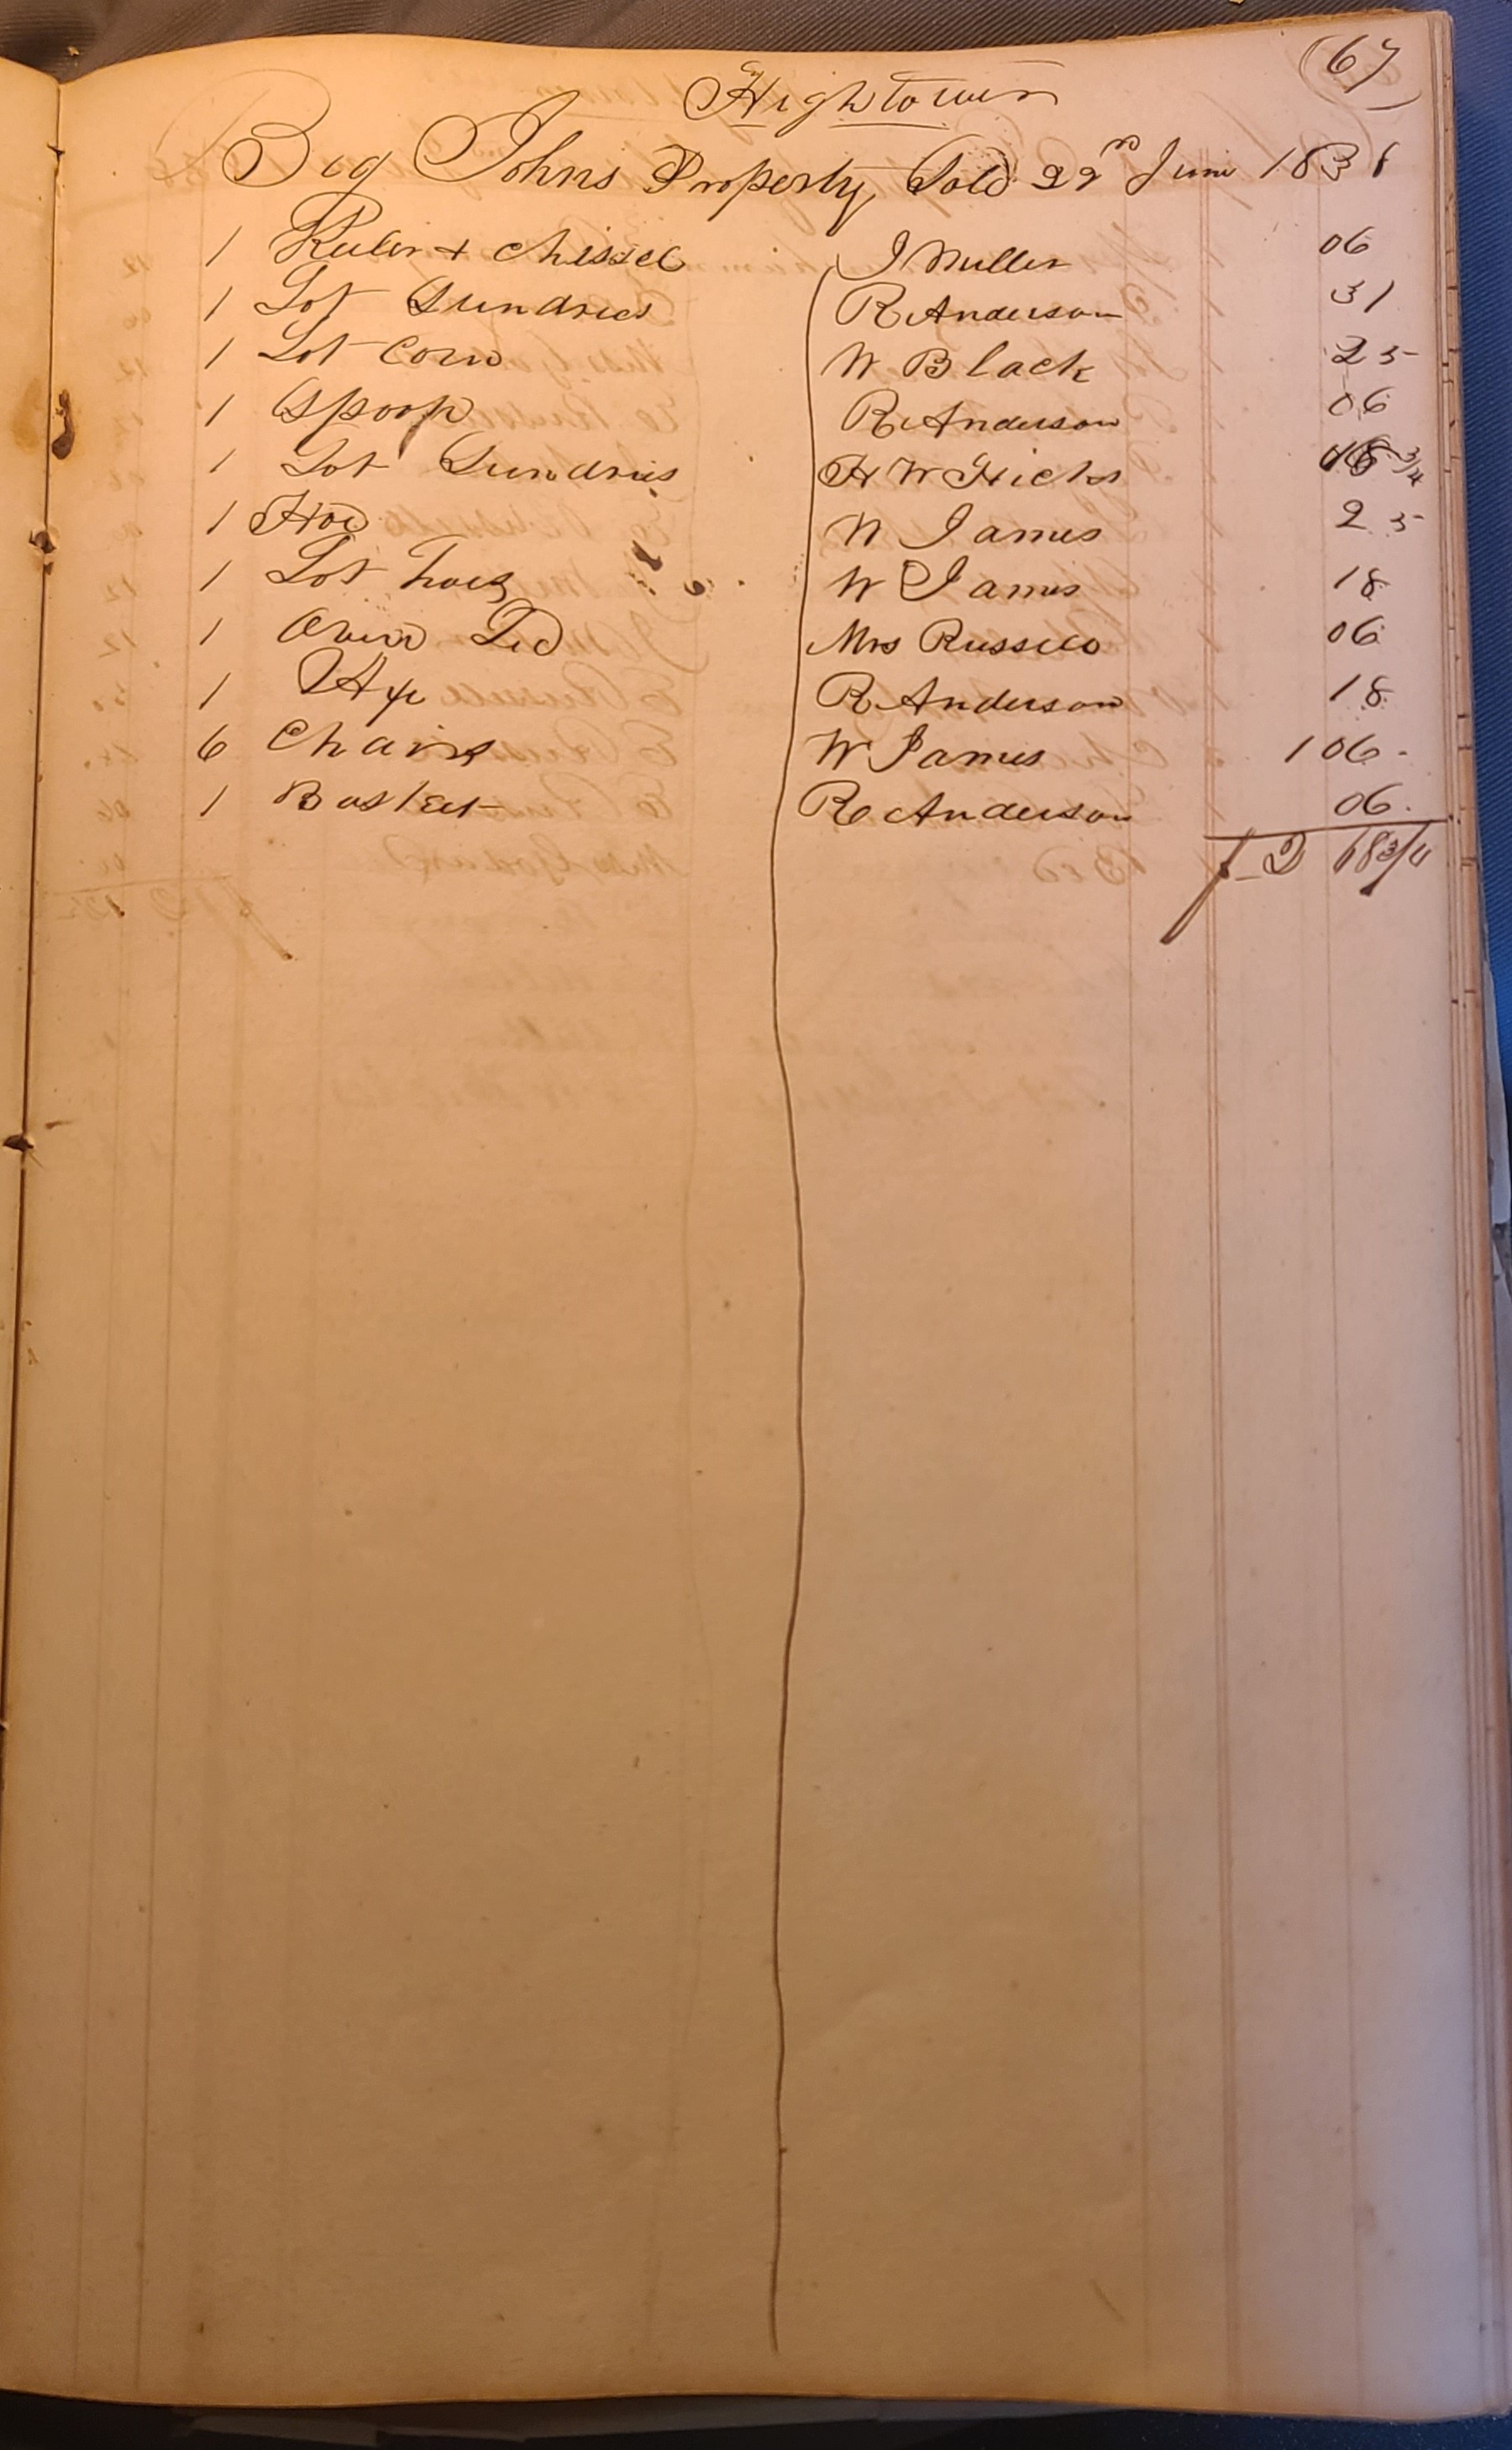 (67)
Hightower
Big Johns Property, Sold 22nd June 1838
1 Ruler + chissel J Miller 06
1 Lot Sundries R Anderson 31
1 Lot Corn W Black 25
1 Spoon R Anderson 06
1 Lot Sundries H W Hicks 18 3/4
1 Hoe W James 25
1 Lot hoes W James 18
1 Oven Led Mrs Russell 06
1 Ax R Anderson 18
6 Chairs W James 1 06
1 Basket R Anderson 06
2 68 3/4